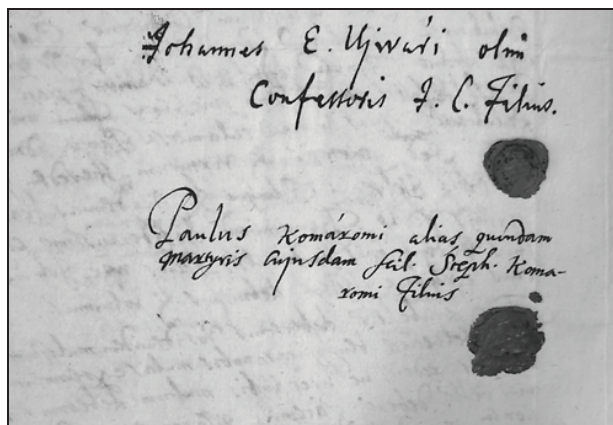 Johannes E. Ujvári olim
Confessoris J. C. Filius.
Paulus Komáromi alias quondam
Martyris cujusdam scil. Steph. Koma-
romi Filius